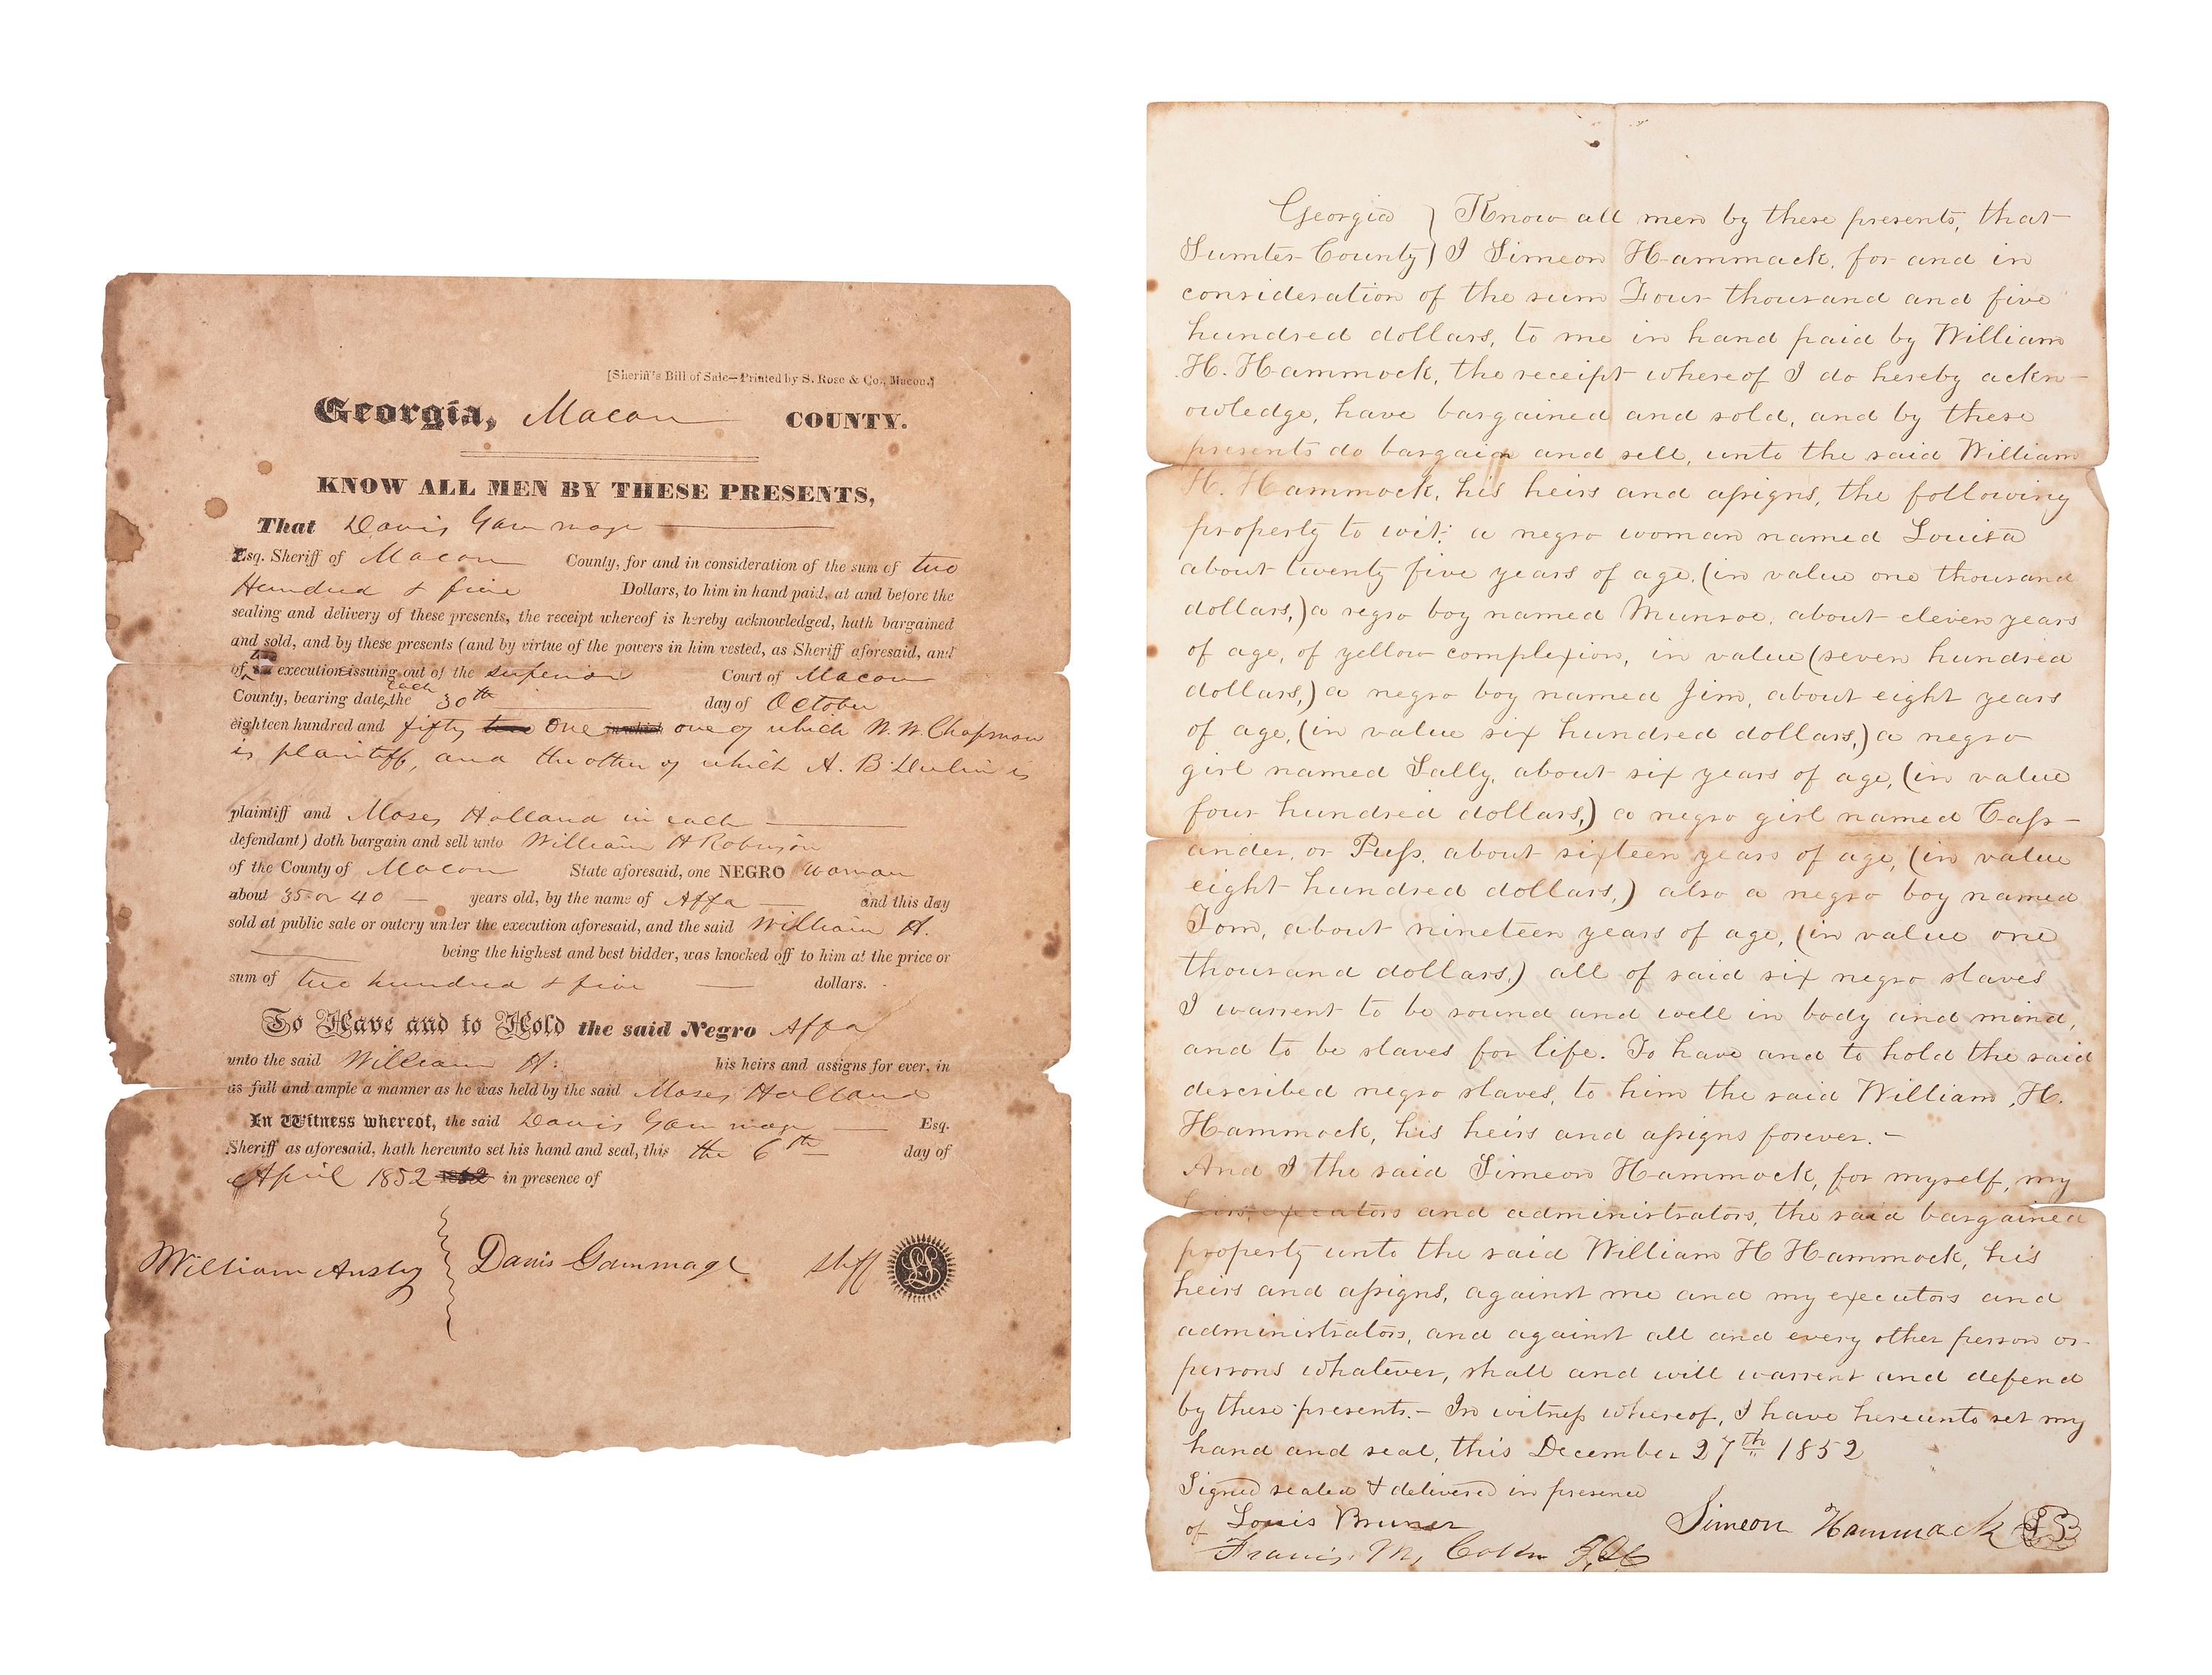 [Sheriff's Bill of Sale—Printed by S. Rose & Co., Macon.]
Georgia, Macon COUNTY.
KNOW ALL MEN BY THESE PRESENTS,
That Davis Gammage
Esq. Sheriff of Macon County, for and in consideration of the sum of two
Hundred & five Dollars, to him in hand paid, at and before the
sealing and delivery of these presents, the receipt whereof is hereby acknowledged, hath bargained
and sold, and by these presents (and by virtue of the powers in him vested, as Sheriff aforesaid, and
of execution issuing out of the superior Court of Macon
County, bearing date, each the 30th day of October
eighteen hundred and fifty two one in which one of which W. W. Chapman
is plaintiff, and the other of which A. B. Dulin is
plaintiff and Moses Holland in each
defendant) doth bargain and sell unto William H Robinson
of the County of Macon State aforesaid, one NEGRO woman
about 35 or 40 years old, by the name of Affa and this day
sold at public sale or outcry under the execution aforesaid, and the said William H.
being the highest and best bidder, was knocked off to him at the price or
sum of two hundred & five dollars.
To Have and to Hold the said Negro Affa
unto the said William H. his heirs and assigns for ever, in
as full and ample a manner as he was held by the said Moses Holland
In Witness whereof, the said Davis Gammage Esq.
Sheriff as aforesaid, hath hereunto set his hand and seal, this the 6th day of
April 1852 in presence of
William Ansley Davis Gammage Shff LS
Georgia } Know all men by these presents, that
Sumter County } I Simeon Hammack, for and in
consideration of the sum Four thousand and five
hundred dollars, to me in hand paid by William
H. Hammock, the receipt whereof I do hereby ackn-
owledge, have bargained and sold, and by these
presents do bargain and sell, unto the said William
H. Hammock, his heirs and assigns, the following
property to wit: a negro woman named Louisa
about twenty five years of age, (in value one thousand
dollars,) a negro boy named Munroe, about eleven years
of age, of yellow complexion, in value (seven hundred
dollars,) a negro boy named Jim, about eight years
of age, (in value six hundred dollars,) a negro
girl named Sally, about six years of age, (in value
four hundred dollars,) a negro girl named Cass-
ander, or Puss, about sixteen years of age, (in value
eight hundred dollars,) also a negro boy named
Tom, about nineteen years of age, (in value one
thousand dollars,) all of said six negro slaves
I warrent to be sound and well in body and mind,
and to be slaves for life. To have and to hold the said
described negro slaves, to him the said William H.
Hammock, his heirs and assigns forever. -
And I the said Simeon Hammock, for myself, my
heirs, executors and administrators, the said bargained
property unto the said William H Hammock, his
heirs and assigns, against me and my executors and
administrators, and against all and every other person or
persons whatever, shall and will warrent and defend
by these presents. - In witness whereof, I have hereunto set my
hand and seal, this December 27th 1852
Signed sealed & delivered in presence
of Louis Bruner Simeon Hammack LS
Francis M,